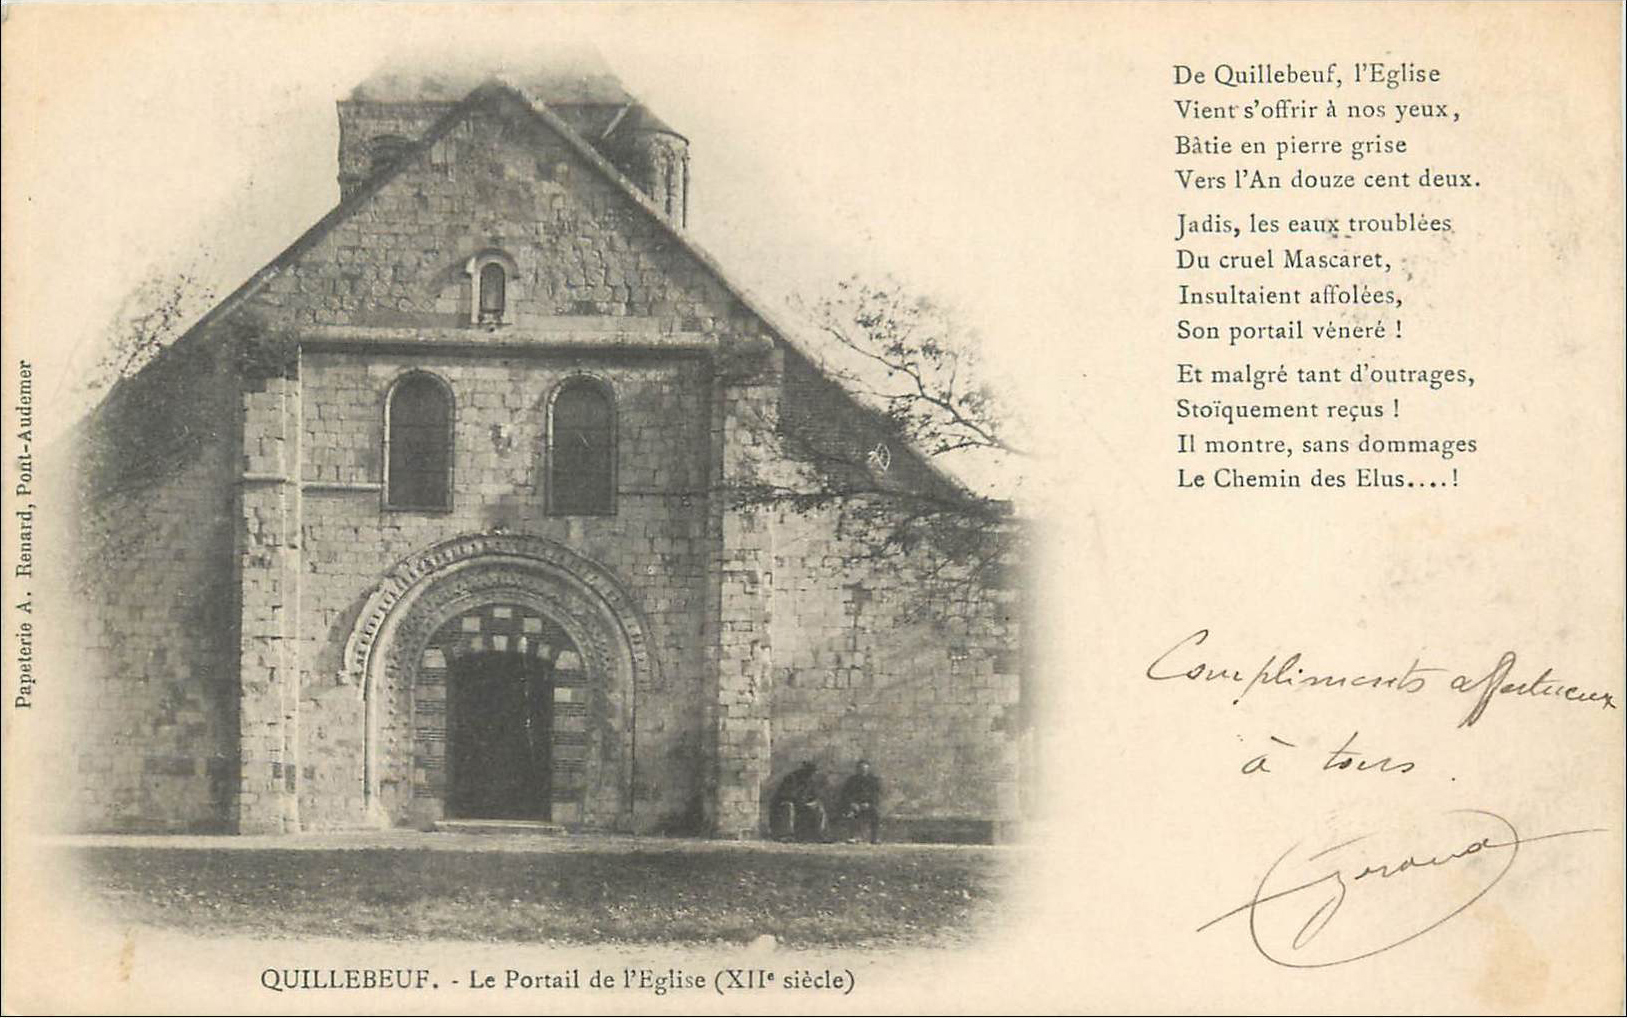 De Quillebeuf, l'Eglise
Vient s'offrir à nos yeux,
Bâtie en pierre grise
Vers l'An douze cent deux.
Jadis, les eaux troublées
Du cruel Mascaret,
Insultaient affolées,
Son portail véneré !
Et malgré tant d'outrages,
Stoïquement reçus !
Il montre, sans dommages
Le Chemin des Elus....!
Compliments affectueux
à tous.
Papeterie A. Renard, Pont-Audemer
QUILLEBEUF. - Le Portail de l'Eglise (XIIe siècle)